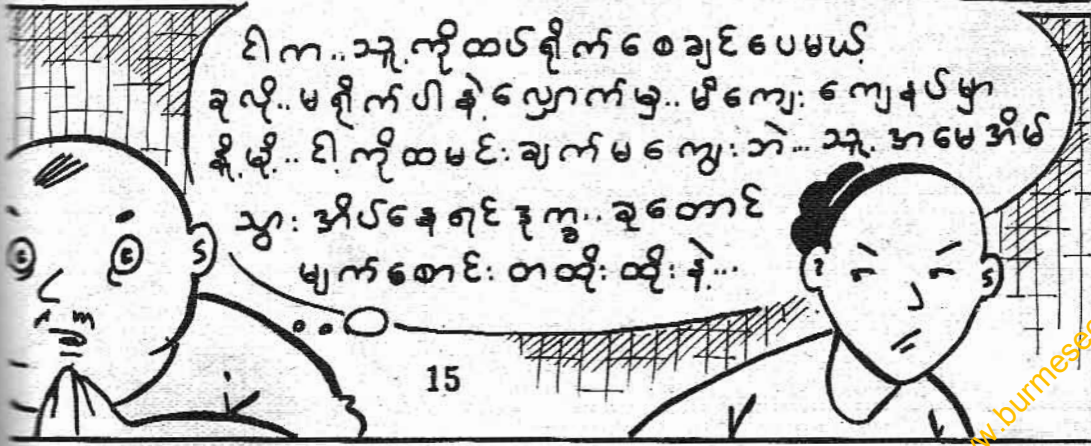 ငါက..သူ့ကိုထပ်ရိုက်စေချင်ပေမယ့်
ခုလို..မရိုက်ပါနဲ့လျှောက်မှ..မိကျေး ကျေနပ်မှာ
နို့မို့..ငါ့ကိုထမင်းချက်မကျွေးဘဲ...သူ့အမေအိမ်
သွားအိပ်နေရင်ဒုက္ခ..ခုတောင်
မျက်စောင်းတထိုးထိုးနဲ့...
15